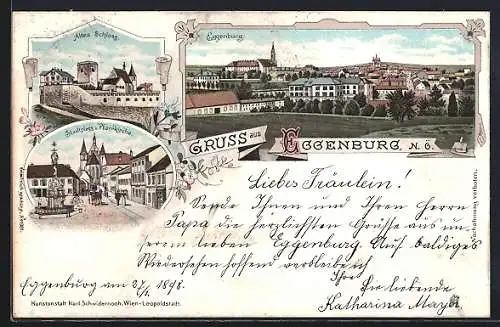 Altes Schloss.
Eggenburg.
Stadtplatz u. Pfarrkirche.
GRUSS aus
EGGENBURG, N. Ö.
Liebes Fräulein!
Sende Ihnen und Ihren Herrn
Papa die herzlichsten Grüsse aus un-
serem lieben Eggenburg. Auf baldiges
Wiedersehen hoffend verbleibe ich
Ihre
Sie liebende
Katharina Mayer
Eggenburg am 27/1. 1898
Kunstanstalt Karl Schwidernoch, Wien-Leopoldstadt.
Nachahmung verboten.